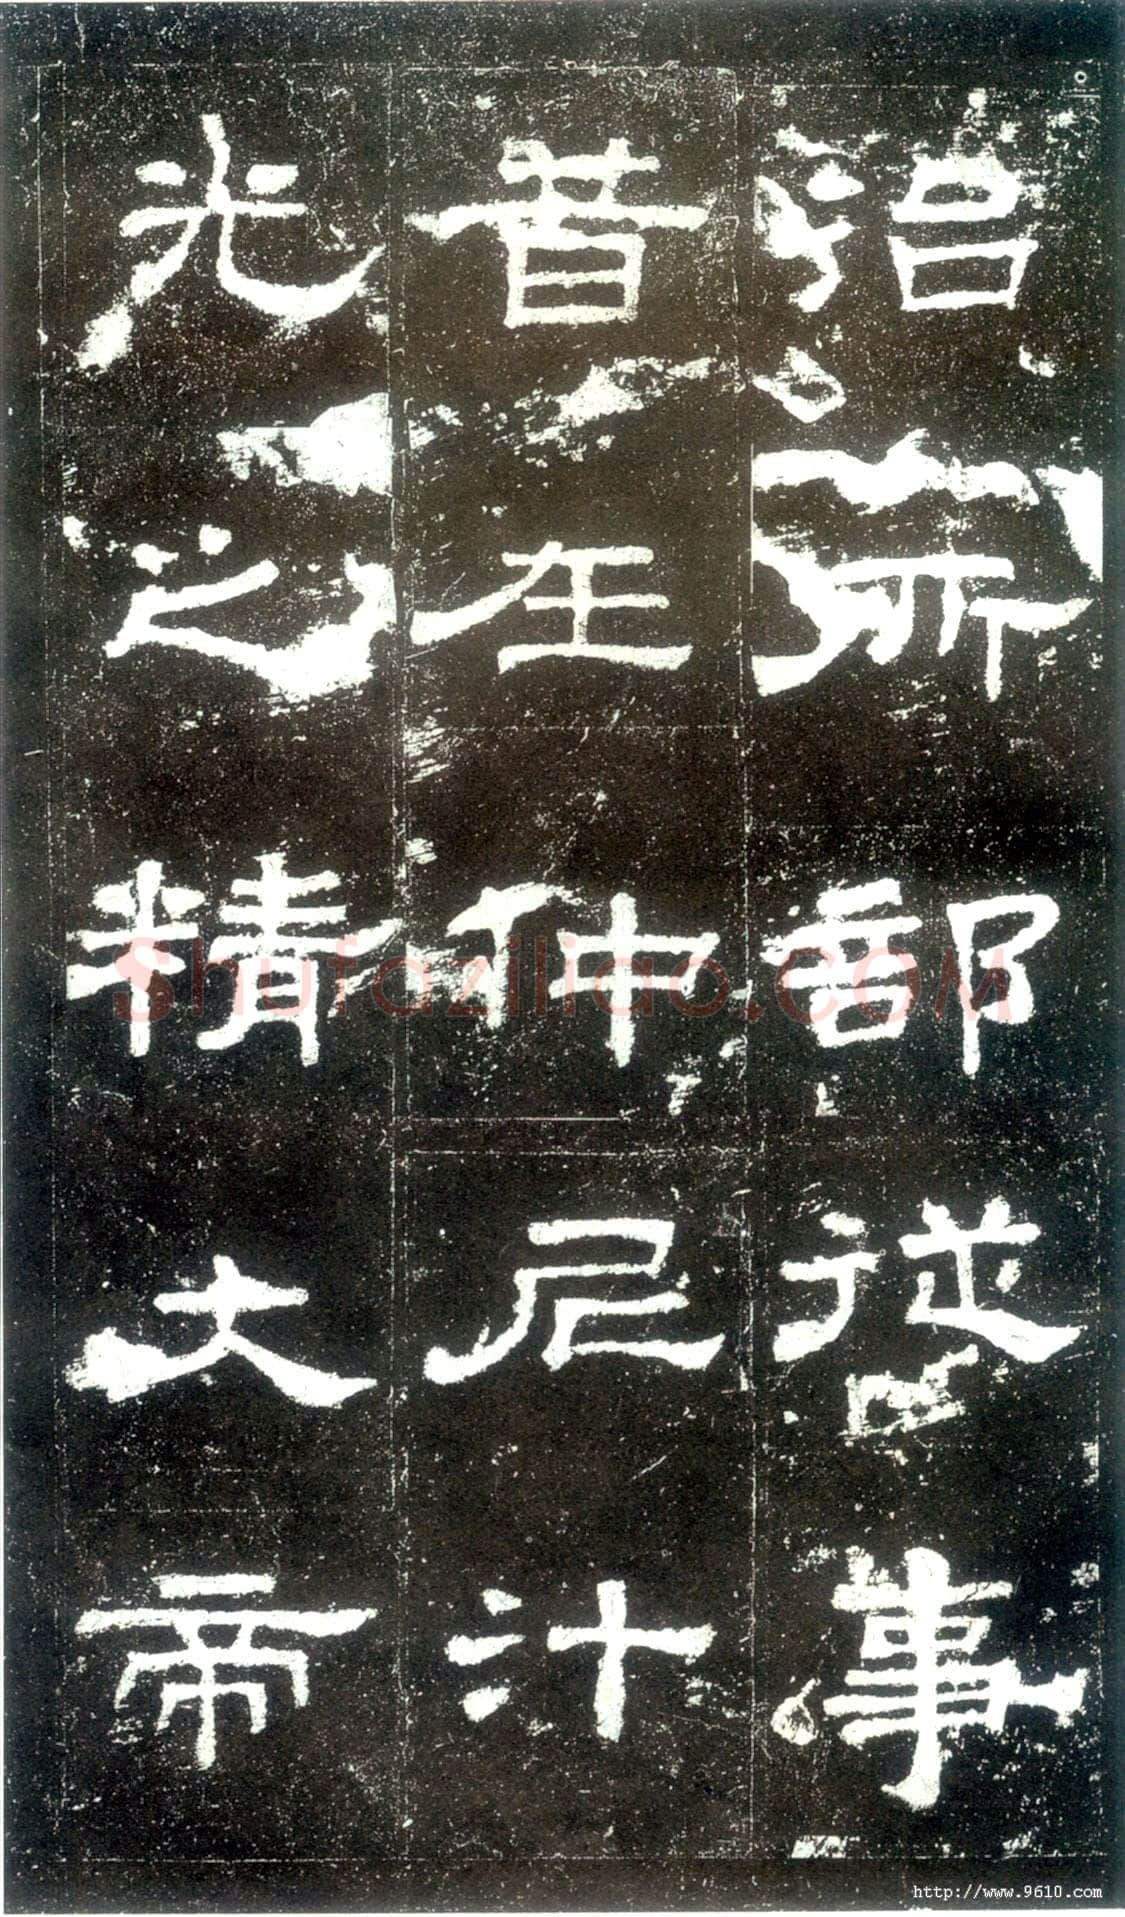 治所部從事
昔在仲尼汁
光之精大帝
Shufaziliao.COM
http://www.9610.com